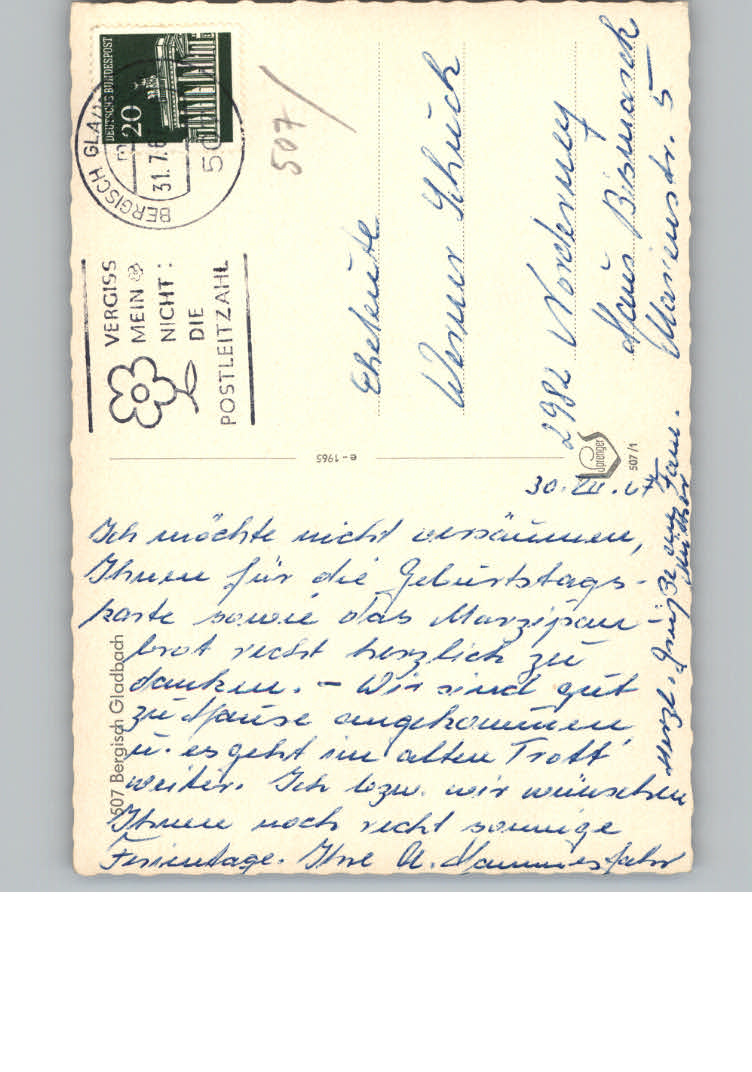 DEUTSCHE BUNDESPOST
20
BERGISCH GLA
31.7.6
50
507
VERGISS
MEIN
NICHT:
DIE
POSTLEITZAHL
Eheleute
Werner Schuck
2982 Norderney
Haus Bismarck
Marienstr. 5
e - 1965
Sprenger
507/1
507 Bergisch Gladbach
30. VII. 67
Ich möchte nicht versäumen,
Ihnen für die Geburtstags-
karte sowie das Marzipan-
brot recht herzlich zu
danken. - Wir sind gut
zu Hause angekommen
u. es geht im alten Trott
weiter. Ich bzw. wir wünschen
Ihnen noch recht sonnige
Ferientage. Ihre A. Hammesfahr
Herzl. Grüße an Fam.